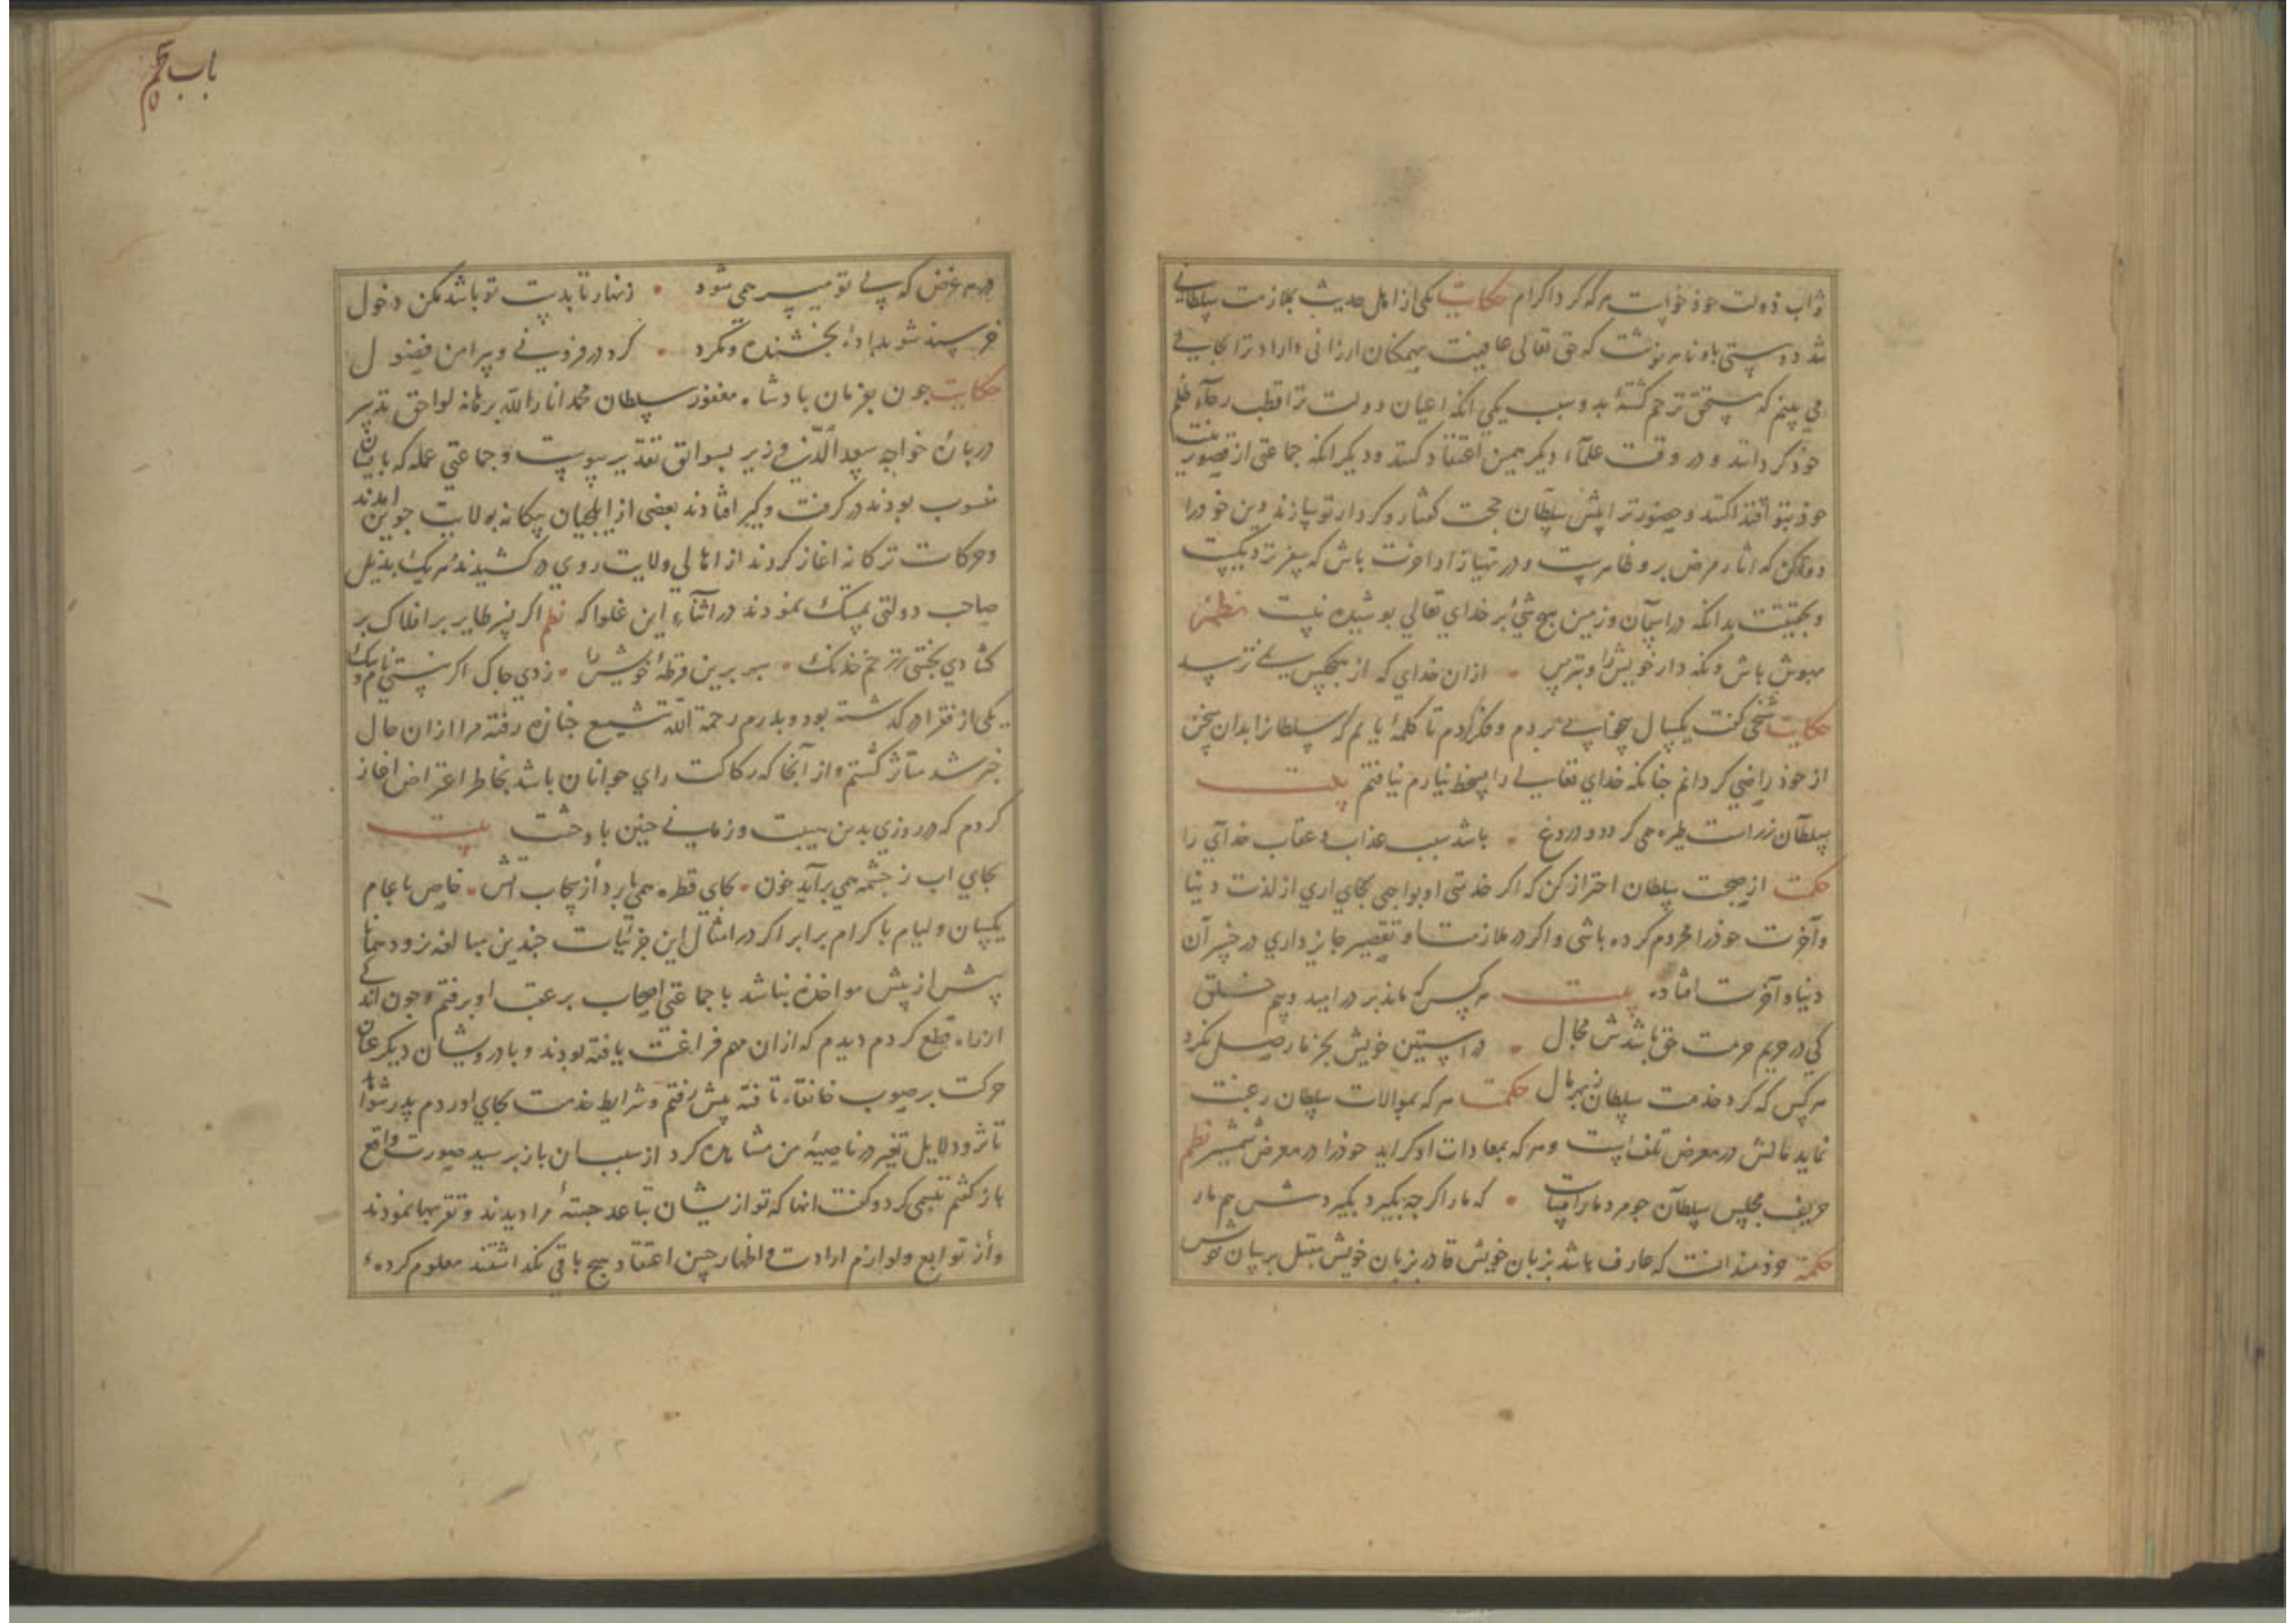 ثواب دولت خود خواست هر که کرد اکرام حکایت یکی از اهل حدیث بملازمت سلطانی
شد دوستی باو نامه نوشت که حق تعالی عافیت بهمکنان ارزانی داراد ترا بجایی
می بینم که مستحق ترحم کشتهٔ بدو سبب یکی آنکه اعیان دولت ترا قطب رحآء ظلم
خود کردانند و در وقت علمآء دیکر همین اعتقاد کنند و دیکر آنکه جماعتی از قصور نیت
خود بتو اقتدا کنند و حضور ترا پیش سلطان حجت کفتار و کردار تو سازند دین خود را
دوا کن که اثار مرض برو ظاهرست و در تهیا زاد اخرت باش که سفر نزدیکست
و بحقیقت بدانکه در اسمآن و زمین هیچ شئ بر خدای تعالی بوشیده نیست نظم
بهوش باش و نکه دار خویش را و بترس • ازان خدای که از هیچکس نمی ترسد
حکایت شخصی کفت یکسال جفا می بردم و فکر کردم تا کلمهٔ یابم که سلطانرا بدان سخن
از خود راضی کردانم جنانکه خدای تعالی را بسخط نیارم نیافتم بیت
سلطآن ز راست طیره همی کردد و دروغ • باشد سبب عذاب و عقاب خدآی را
حکمت از صحبت سلطان احتراز کن که اکر خدمتی او بواجبی بجای اری از لذت دنیا
و آخرت خود را محروم کرده باشی و اکر در ملازمت او تقصیر جایز داری در خسران
دنیا و آخرت افتاده بیت هر کس که ماند بر در امید و بیم خلق
کی در حریم حرمت حق باشدش مجال • در استین خویش بجز مار حاصل نکرد
هر کس که کرد خدمت سلطان ز بهر مال حکمت هر که بموالات سلطان رغبت
نماید مالش در معرض تلف است و هر که بمعادات او کراید خود را در معرض شمشیر نظم
حریف مجلس سلطآن جو مرد مار افساست • که مار اکر جه بکیرد بکیردش هم مار
حکمة خردمند آنست که عارف باشد بزبان خویش قادر بزبان خویش مقبل بر سان خویش
باب پنجم
در هر غرض که بی تو میسر همی شود • زنهار تا بدست تو باشد مکن دخول
خرسند شو بدادهٔ بخشنده و مکرد • کرد در فزونی و پیرامن فضول
حکایت جون بفرمان بادشاه مغفور سلطان محمد انار الله برهانه لواحق تدبیر
دربارهٔ خواجه سعد الدّین وزیر بسوابق تقدیر بیوست و جماعتی عمله که بایشان
منسوب بودند در کرفت و کیر افتادند بعضی از ایلجیان بیکانه بولایت جوین امدند
و حرکات ترکانه اغاز کردند از اهالی ولایت روی در کشیدند هر یک بذیل
صاحب دولتی تمسک نمودند در اثنآء این غلوا که نظم اکر نسر طایر بر افلاک بر
کشادی بجستی ز زخم خدنک • سر برین قرطهٔ خویش را • زدی جاک اکر نیستی نام و ننک
یکی از فقرا در کذشته بود و بدرم رحمة الله تشییع جنازه رفته مرا ازان حال
خبر شد متأثر کشتم و از آنجا که رکاکت رای جوانان باشد بخاطر اعتراض اغاز
کردم که در روزی بدین هیبت و زمانی جنین با وحشت بیت
بجای اب ز جشمه همی برآید خون • بجای قطره همی بارد از سحاب اتش • خاص با عام
یکسان و لیام با کرام برابر اکر در امثال این جزئیات جندین مبالغه نرود همانا
پیش از پیش مواخذه نباشد با جماعتی اصحاب بر عقب او برفتم و جون اندکی
از راه قطع کردم دیدم که ازان مهم فراغت یافته بودند و با درویشان دیکر عنان
حرکت بر صوب خانقاه تافته پیش رفتم و شرایط خدمت بجای اوردم پدر شواهد
تاثر و دلایل تغیر در ناصیهٔ من مشاهده کرد از سبب ان باز برسید صورت واقع
باز کفتم تبسمی کرد و کفت انها که تو از یشان تباعد جستهٔ مرا دیدند و تقربها نمودند
و از توابع و لوازم ارادت و اظهار حسن اعتقاد هیچ باقی نکذاشتند معلوم کرده‌ٔ